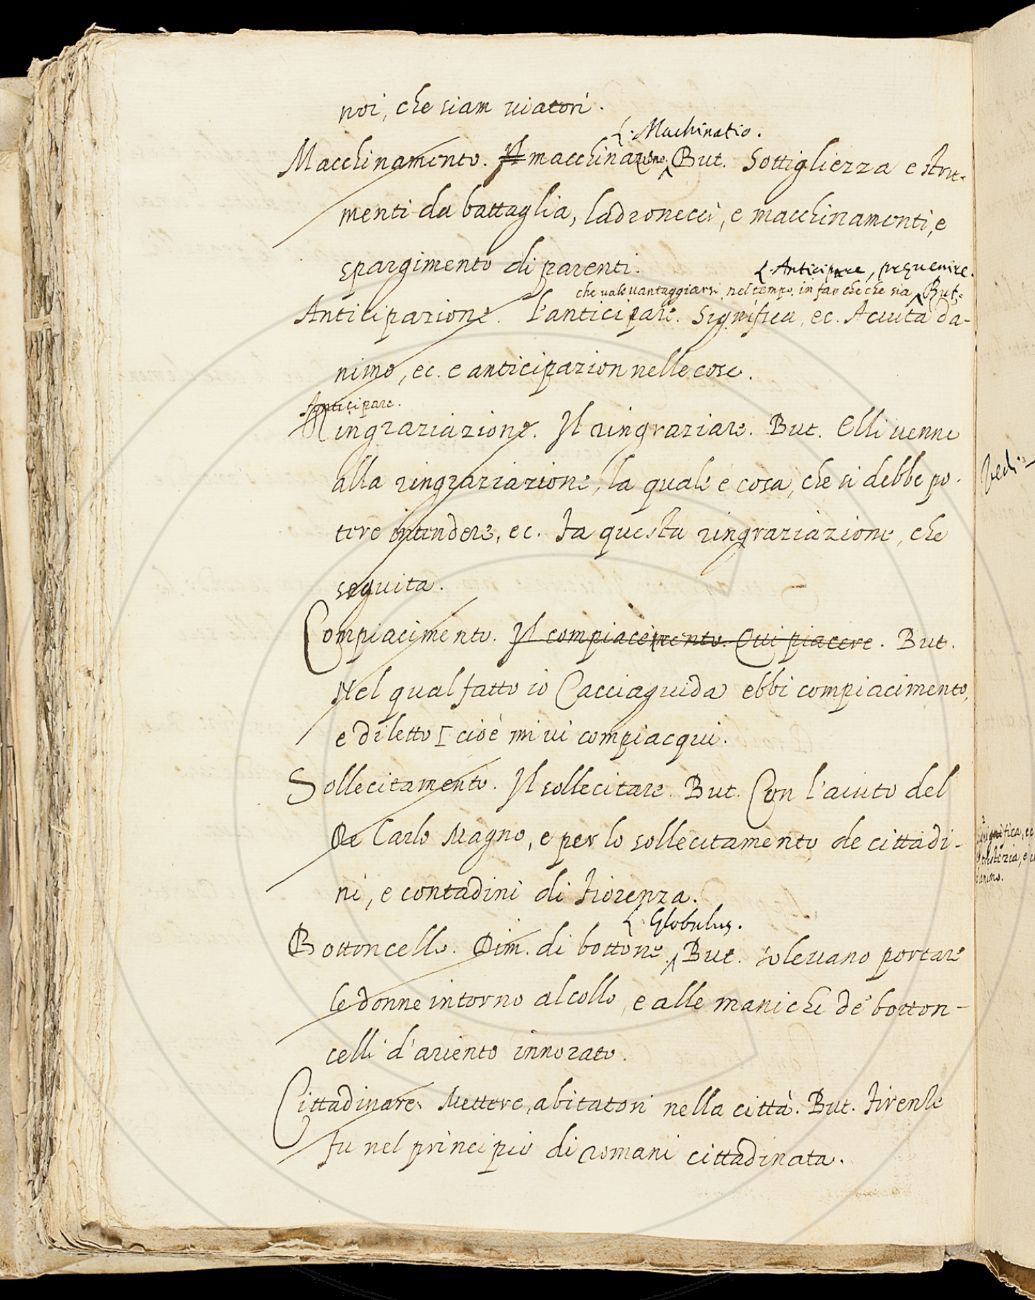 noi, che siam viatori.
L. Machinatio.
Macchinamento. Il macchinazione, But. Sottigliezza e stru-
menti da battaglia, ladronecci, e macchinamenti, e
spargimento di parenti.
L. Anticipare, prevenire.
che vale vantaggiarsi nel tempo in far che che sia But.
Anticipazione. l'anticipare. Significa, ec. Acuità da-
nimo, ec. e anticipazion nelle cose.
Anticipare.
Ringraziazione. Il ringraziare. But. Elli venne
alla ringraziazione, la quale e cosa, che si debbe po-
tere intendere, ec. Fa questa ringraziazione, che
seguita.
Compiacimento. Il compiacimento. Qui piacere. But.
Nel qual fatto io Cacciaguida ebbi compiacimento,
e diletto [cioè mi vi compiacqui.
Sollecitamento. Il sollecitare. But. Con l'aiuto del
Re Carlo Magno, e per lo sollecitamento de cittadi-
ni, e contadini di Fiorenza.
L. Globulus.
Bottoncello. Dim. di bottone, But. solevano portare
le donne intorno al collo, e alle maniche de' botton-
celli d'ariento innorato.
Cittadinare. Mettere abitatori nella città. But. Firenze
fu nel principio di romani cittadinata.